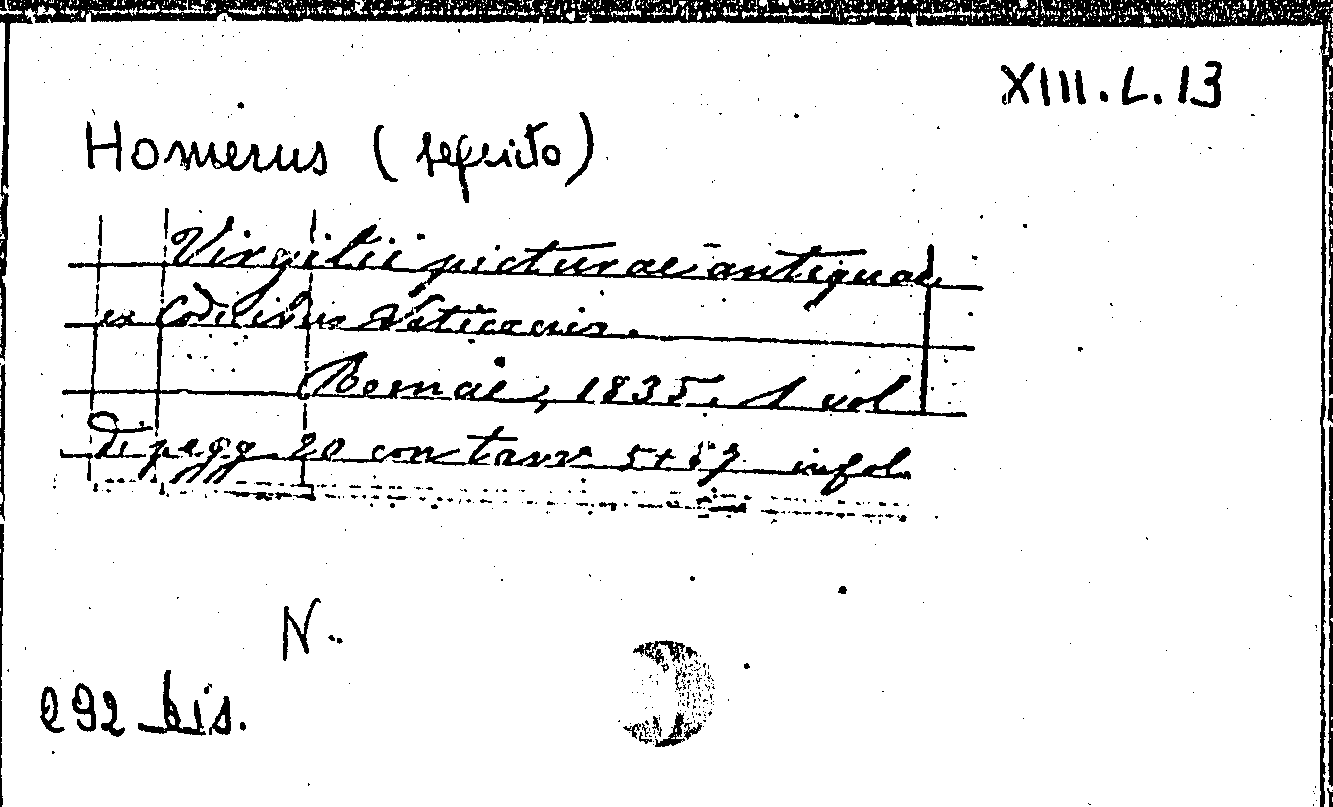 XIII.L.13
Homerus (seguito)
Virgilii picturae antiquae
ex Codicibus Vaticanis.
Romae, 1835. 1 vol
di pagg. 20 con tavv. 5+57 in fol.
N.
292 bis.